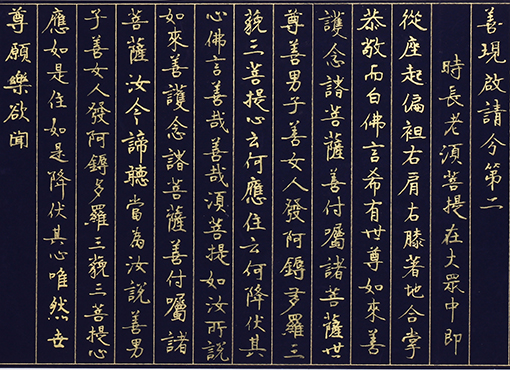 善現啟請分第二
時長老須菩提在大眾中即
從座起偏袒右肩右膝著地合掌
恭敬而白佛言希有世尊如來善
護念諸菩薩善付囑諸菩薩世
尊善男子善女人發阿鎒多羅三
藐三菩提心云何應住云何降伏其
心佛言善哉善哉須菩提如汝所說
如來善護念諸菩薩善付囑諸
菩薩汝今諦聽當為汝說善男
子善女人發阿鎒多羅三藐三菩提心
應如是住如是降伏其心唯然世
尊願樂欲聞